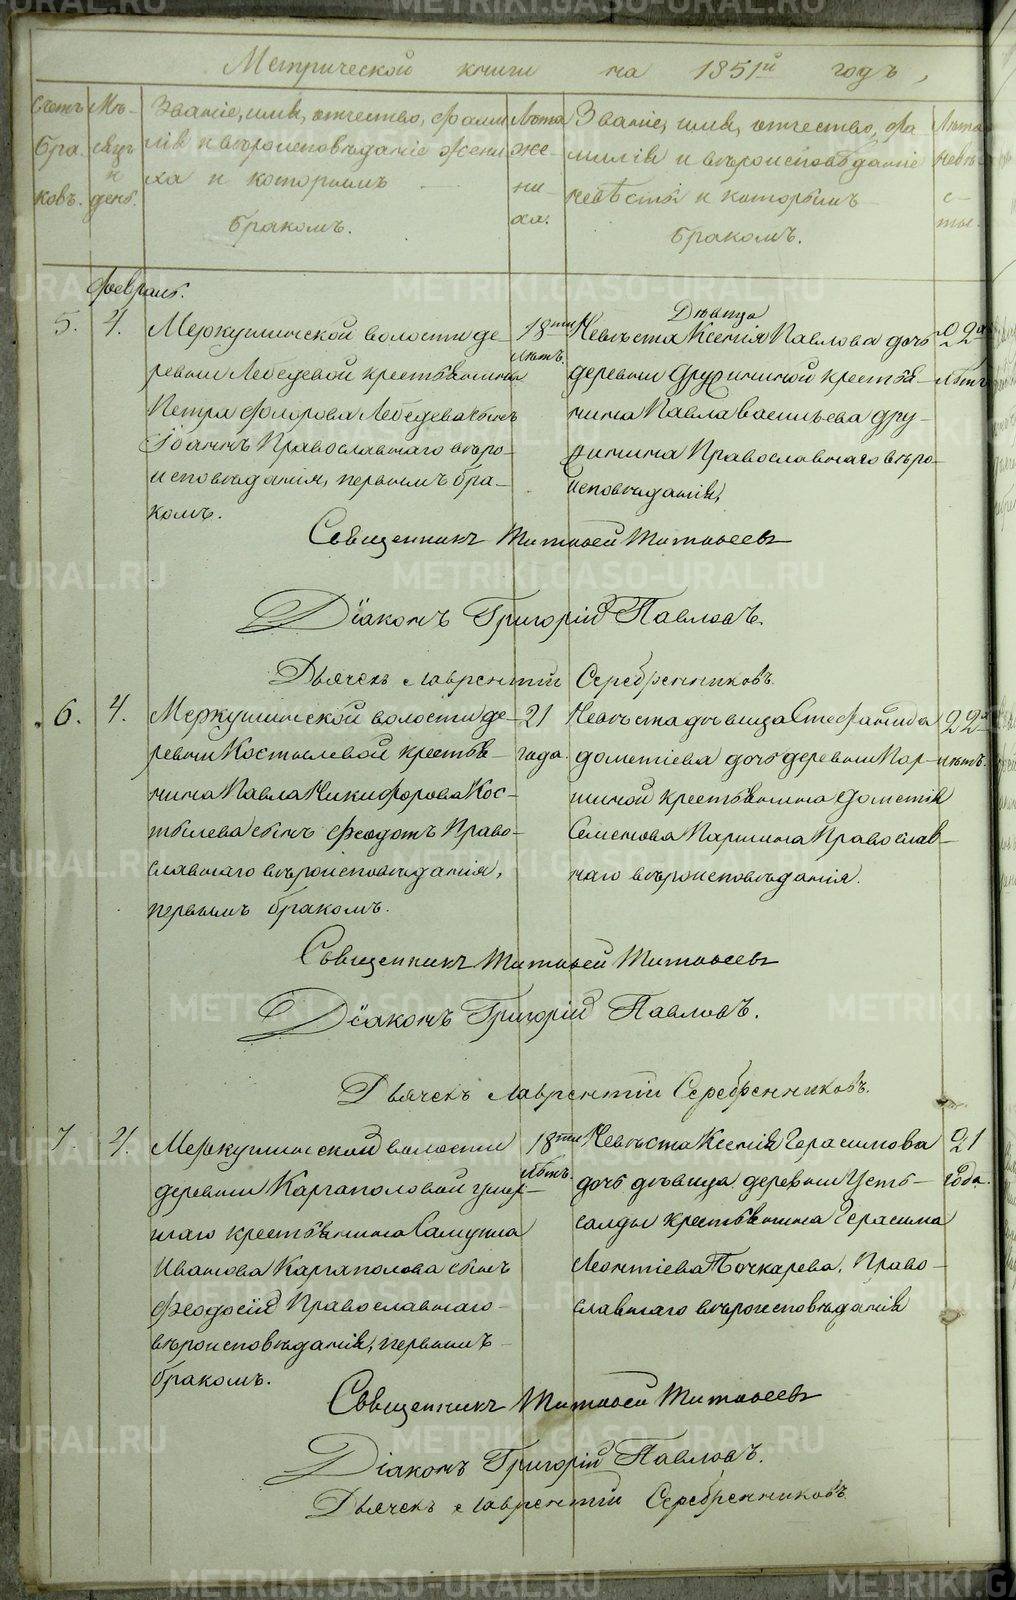 Метрической книги на 1851й годъ,
Счетъ браковъ.
Мѣсяцъ и день.
Званіе, имя, отчество, фамилія и вѣроисповѣданіе жениха и которымъ бракомъ.
Лѣта жениха.
Званіе, имя, отчество, фамилія и вѣроисповѣданіе невѣсты и которымъ бракомъ.
Лѣта невѣсты.
Февраль.
5.
4.
Меркушинской волости де-
ревни Лебедевой крестьянина
Петра Флорова Лебедева сынъ
Іоаннъ Православнаго вѣро-
исповѣданія, первымъ бра-
комъ.
18ти
лѣтъ.
Дѣвица
Невѣста Ксенія Павлова дочь
деревни Дружининой крестья-
нина Павла Васильева Дру-
жинина Православнаго вѣро-
исповѣданія,
22х
лѣтъ
Священникъ Матвей Матвеевъ
Діаконъ Григорій Павловъ.
Дьячекъ Лаврентій Серебренниковъ.
6.
4.
Меркушинской волости де-
ревни Костылевой крестья-
нина Павла Никифорова Кос-
тылева сынъ Феодотъ Право-
славнаго вѣроисповѣданія,
первымъ бракомъ.
21
года.
Невѣста дѣвица Стефанида
Дометіева дочь деревни Пар-
шиной крестьянина Дометія
Семенова Паршина Православ-
наго вѣроисповѣданія.
22х
лѣтъ.
Священникъ Матвей Матвеевъ
Діаконъ Григорій Павловъ.
Дьячекъ Лаврентій Серебренниковъ.
7
4.
Меркушинской волости
деревни Каргаполовой умер-
шаго крестьянина Самуила
Иванова Каргаполова сынъ
Феодосій Православнаго
вѣроисповѣданія, первымъ
бракомъ.
18ти
лѣтъ.
Невѣста Ксенія Герасимова
дочь дѣвица деревни Усть-
салды крестьянина Герасима
Леонтіева Точкарева, Право-
славнаго вѣроисповѣданія
21
года.
Священникъ Матвей Матвеевъ
Діаконъ Григорій Павловъ.
Дьячекъ Лаврентій Серебренниковъ
METRIKI.GASO-URAL.RU